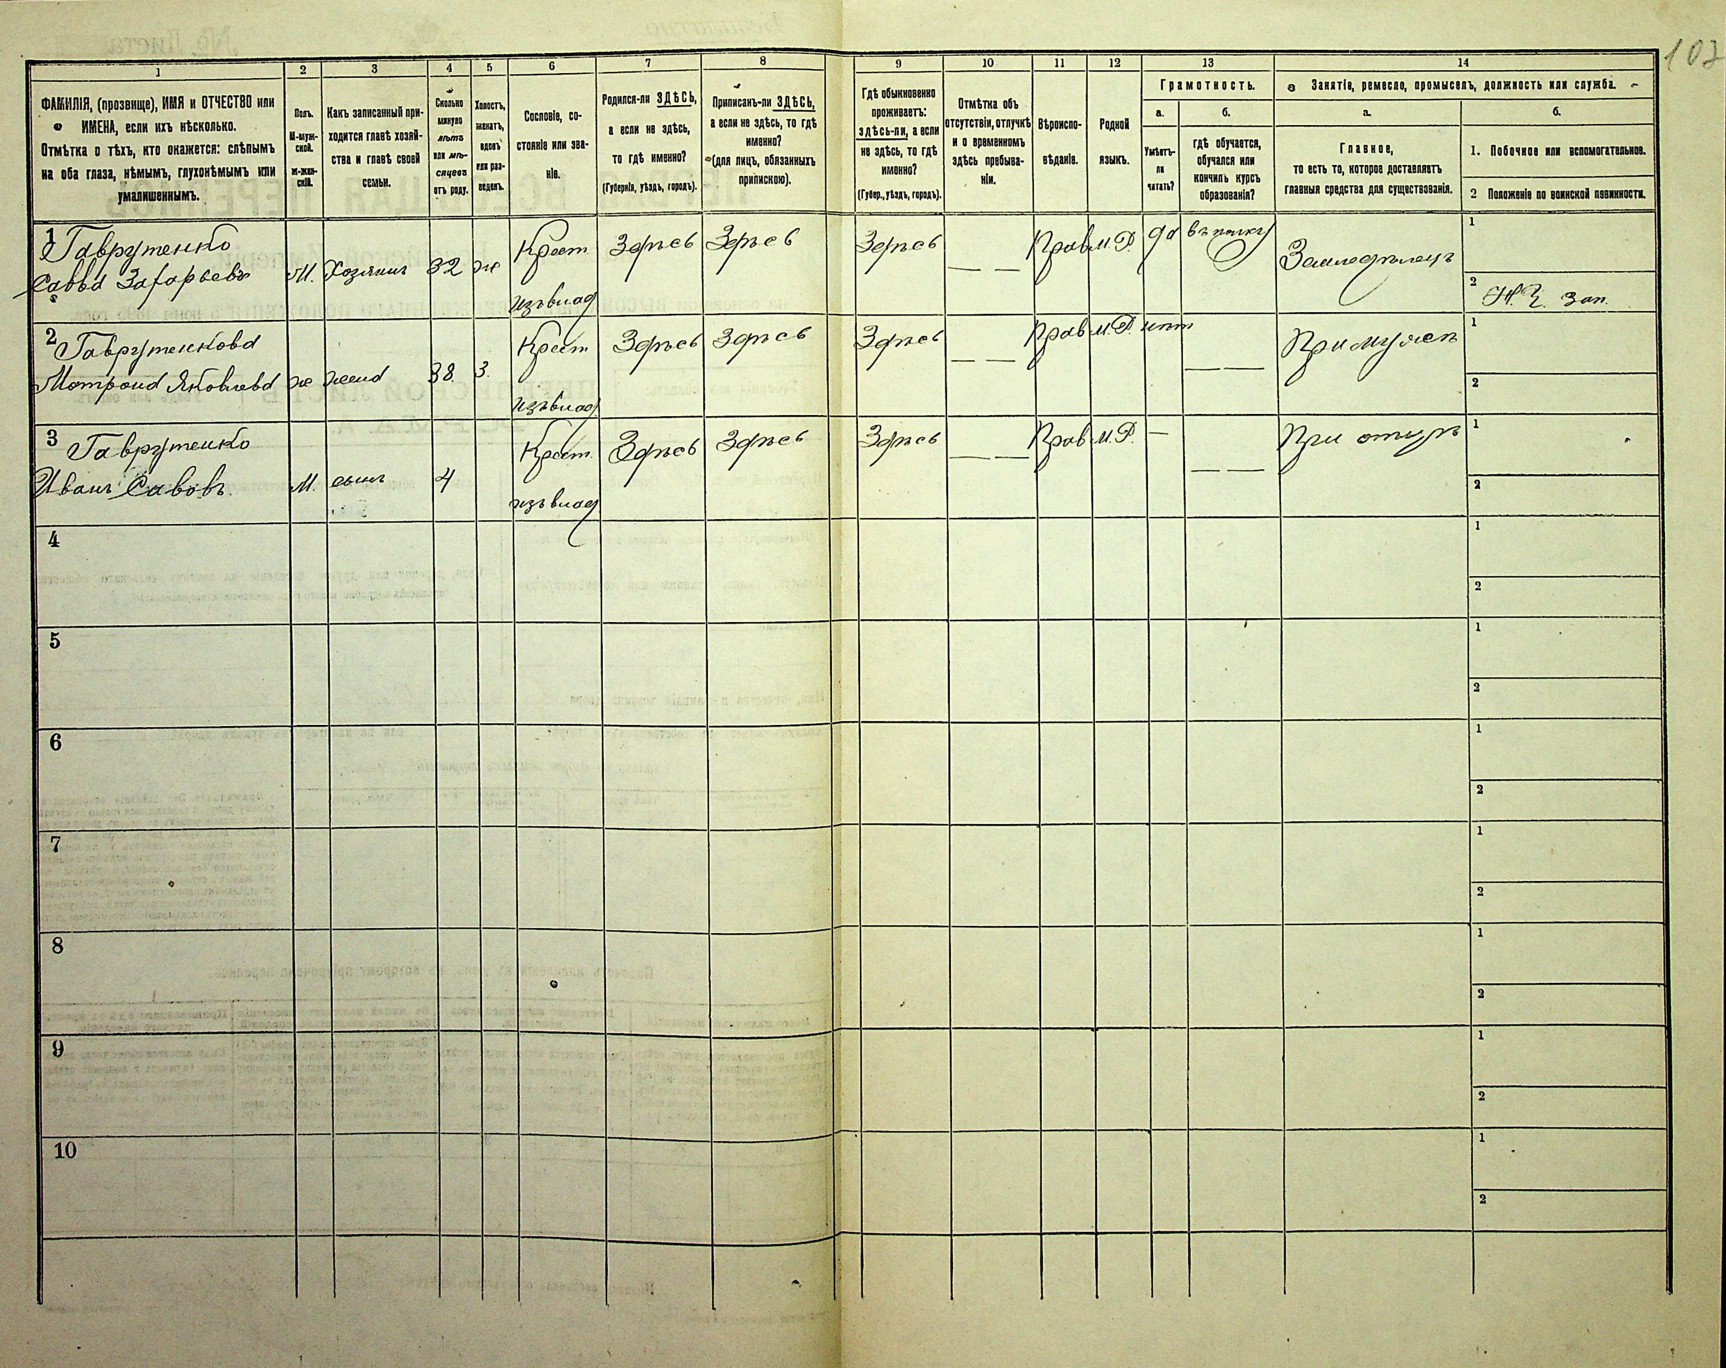 107
1
2
3
4
5
6
7
8
9
10
11
12
13
14
ФАМИЛІЯ, (прозвище), ИМЯ и ОТЧЕСТВО или
ИМЕНА, если ихъ нѣсколько.
Отмѣтка о тѣхъ, кто окажется: слѣпымъ
на оба глаза, нѣмымъ, глухонѣмымъ или
умалишеннымъ.
Полъ.
М-муж-
ской.
ж-жен-
скій.
Какъ записанный при-
ходится главѣ хозяй-
ства и главѣ своей
семьи.
Сколько
минуло
лѣтъ
или мѣ-
сяцевъ
отъ роду.
Холостъ,
женатъ,
вдовъ
или раз-
веденъ.
Сословіе, со-
стояніе или зва-
ніе.
Родился-ли ЗДѢСЬ,
а если не здѣсь,
то гдѣ именно?
(Губернія, уѣздъ, городъ).
Приписанъ-ли ЗДѢСЬ,
а если не здѣсь, то гдѣ
именно?
(для лицъ, обязанныхъ
припискою).
Гдѣ обыкновенно
проживаетъ:
здѣсь-ли, а если
не здѣсь, то гдѣ
именно?
(Губер., уѣздъ, городъ).
Отмѣтка объ
отсутствіи, отлучкѣ
и о временномъ
здѣсь пребыва-
ніи.
Вѣроиспо-
вѣданіе.
Родной
языкъ.
Грамотность.
а.
Умѣетъ-
ли
читать?
б.
гдѣ обучается,
обучался или
кончилъ курсъ
образованія?
Занятіе, ремесло, промыселъ, должность или служба.
а.
Главное,
то есть то, которое доставляетъ
главныя средства для существованія.
б.
1. Побочное или вспомогательное.
2 Положеніе по воинской повинности.
1
Гаврутенко
Савва Захарьевъ
М.
Хозяинъ
32
ж
Крест
изъ влад
Здѣсь
Здѣсь
Здѣсь
— —
Прав
М.Р.
да
въ полку
Земледѣлецъ
1
2
зап.
2
Гаврутенкова
Матрона Яковлева
ж
жена
38
З.
Крест
изъ влад
Здѣсь
Здѣсь
Здѣсь
— —
Прав
М.Р.
нѣт
— —
При мужѣ
1
2
3
Гаврутенко
Иванъ Савовъ.
М.
сынъ
4
Крест.
изъ влад
Здѣсь
Здѣсь
Здѣсь
— —
Прав
М.Р.
—
— —
При отцѣ
1
2
4
1
2
5
1
2
6
1
2
7
1
2
8
1
2
9
1
2
10
1
2